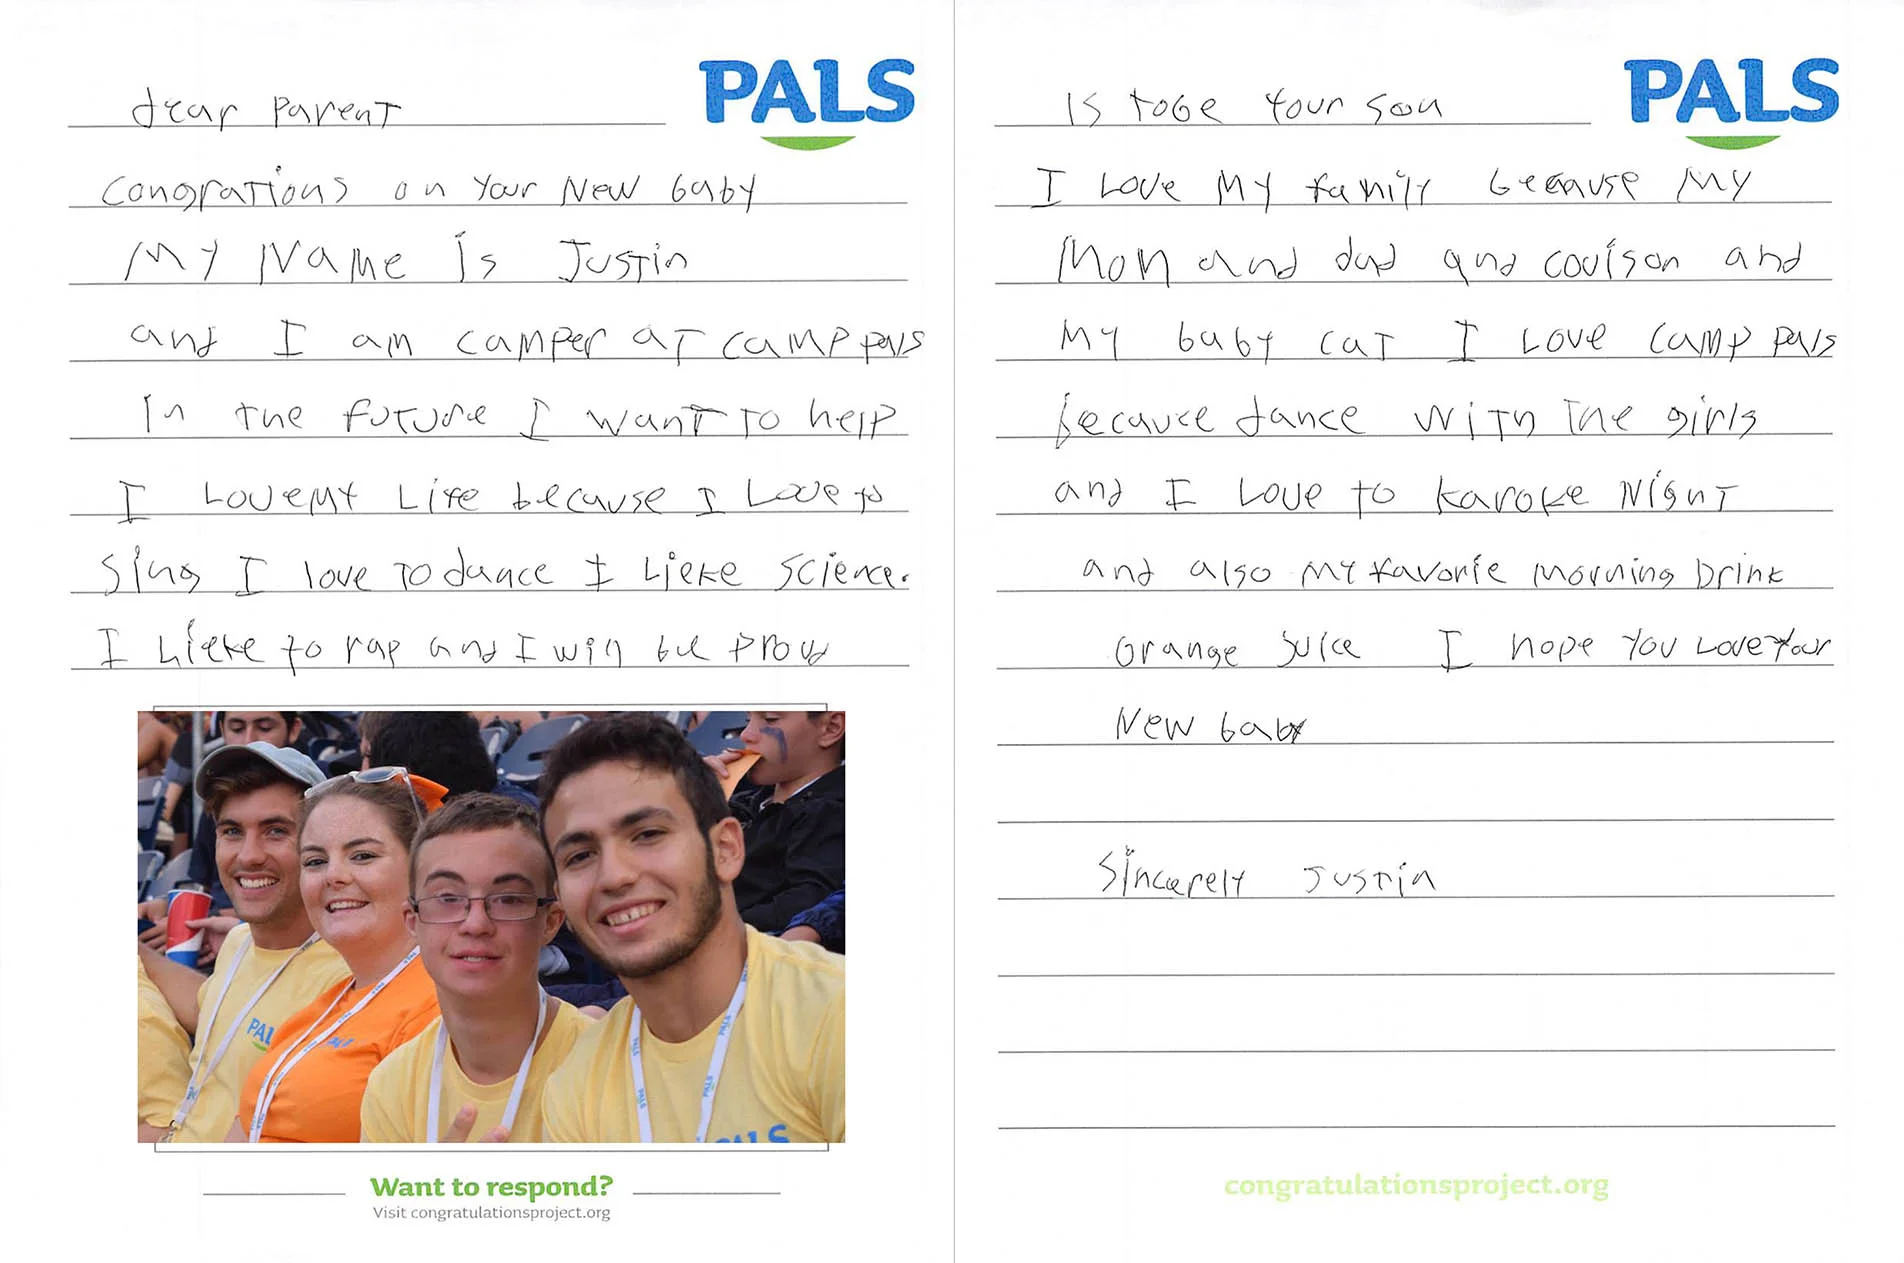 PALS
dear Parent
congrations on your New baby
My Name is Justin
and I am camper at camp pals
In the future I want to help
I Love My Life because I Love to
sing I love to dance I Lieke science.
I Lieke to rap and I will be proud
PAL
PALS
Want to respond?
Visit congratulationsproject.org
PALS
Is tobe your son
I Love My family because My
Mom and dad and couison and
My baby cat I Love camp pals
becauce dance with the girls
and I Love to karoke Night
and also My favorie Morning Drink
orange juice I hope you Love your
New baby
Sincerely Justin
congratulationsproject.org